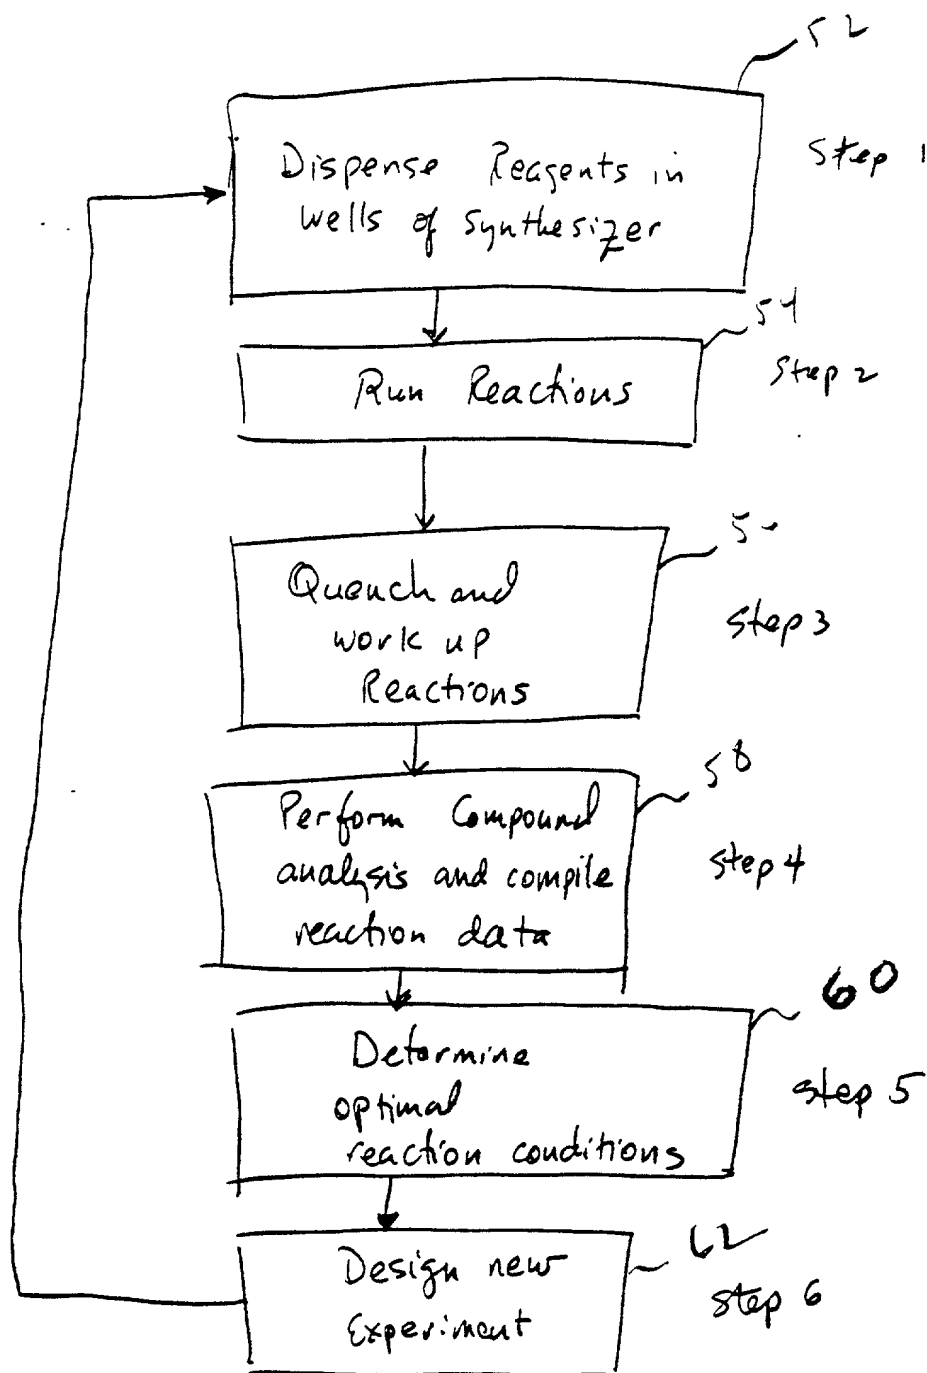 52
Step 1
Dispense Reagents in
wells of synthesizer
54
Step 2
Run Reactions
Step 3
Quench and
work up
Reactions
58
Step 4
Perform Compound
analysis and compile
reaction data
60
Step 5
Determine
optimal
reaction conditions
62
Step 6
Design new
Experiment